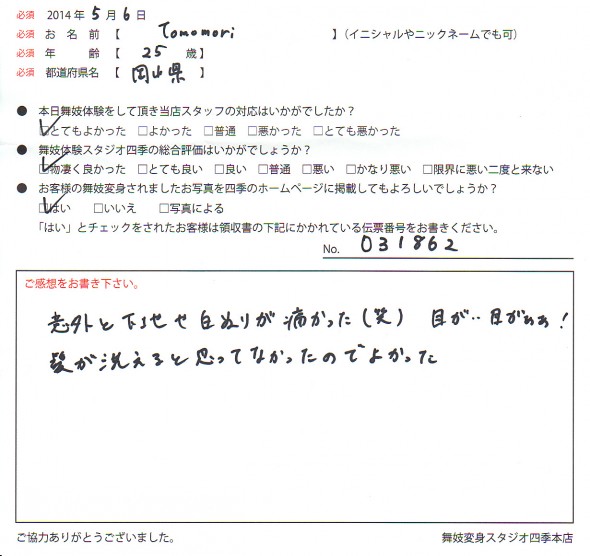 必須 2014年 5月 6日
必須 お名前【 Tomomori 】(イニシャルやニックネームでも可)
必須 年齢【 25 歳】
必須 都道府県名【 岡山県 】
● 本日舞妓体験をして頂き当店スタッフの対応はいかがでしたか?
☑とてもよかった □よかった □普通 □悪かった □とても悪かった
● 舞妓体験スタジオ四季の総合評価はいかがでしょうか?
☑物凄く良かった □とても良い □良い □普通 □悪い □かなり悪い □限界に悪い二度と来ない
● お客様の舞妓変身されましたお写真を四季のホームページに掲載してもよろしいでしょうか?
☑はい □いいえ □写真による
「はい」とチェックをされたお客様は領収書の下記にかかれている伝票番号をお書きください。
No. 031862
ご感想をお書き下さい。
意外と 白ぬりが痛かった(笑) 目が‥目がぁぁ!
髪が洗えると思ってなかったのでよかった
ご協力ありがとうございました。
舞妓変身スタジオ四季本店